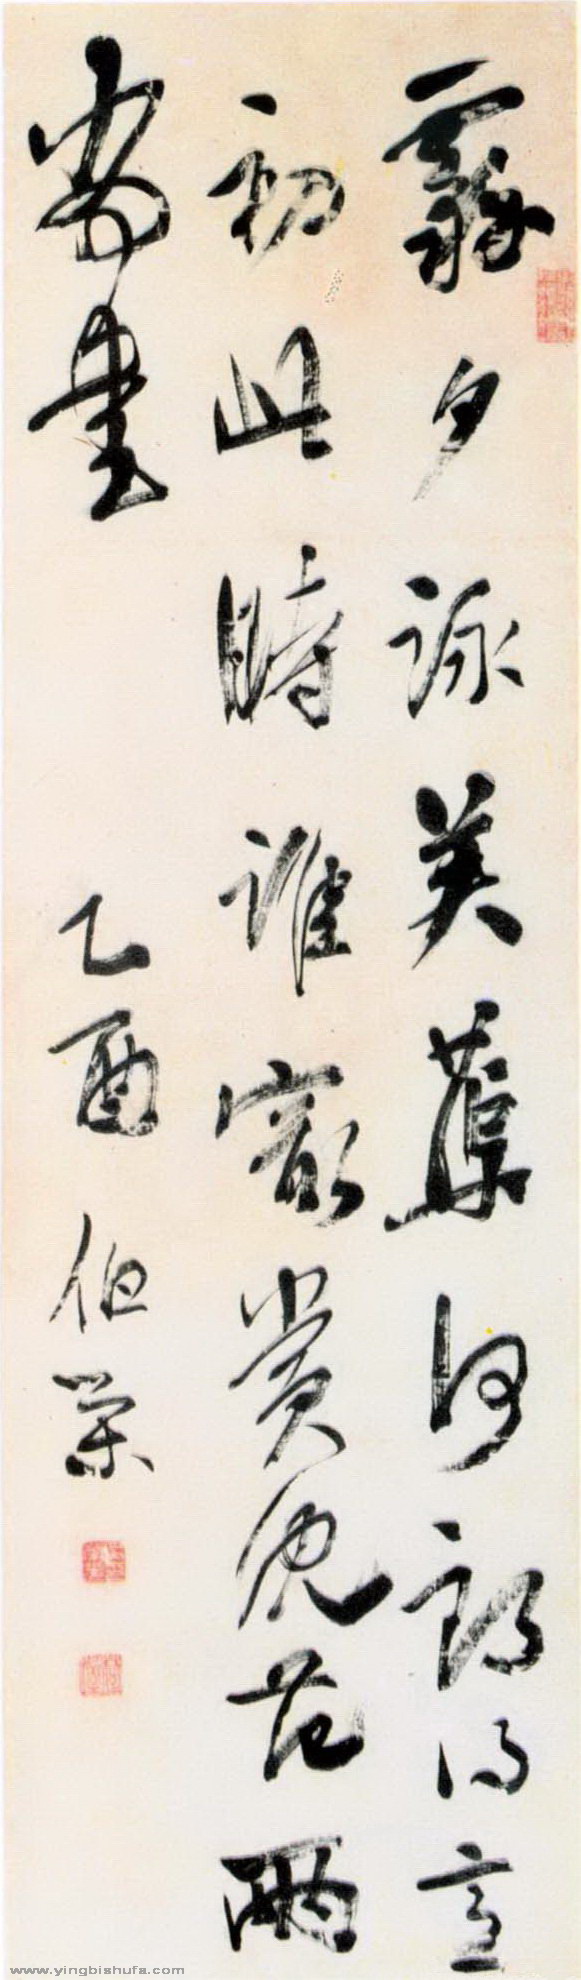 霧夕詠芙蕖何郎得意
初此時誰最賞沈范兩
尚書 乙酉伯榮
www.yingbishufa.com